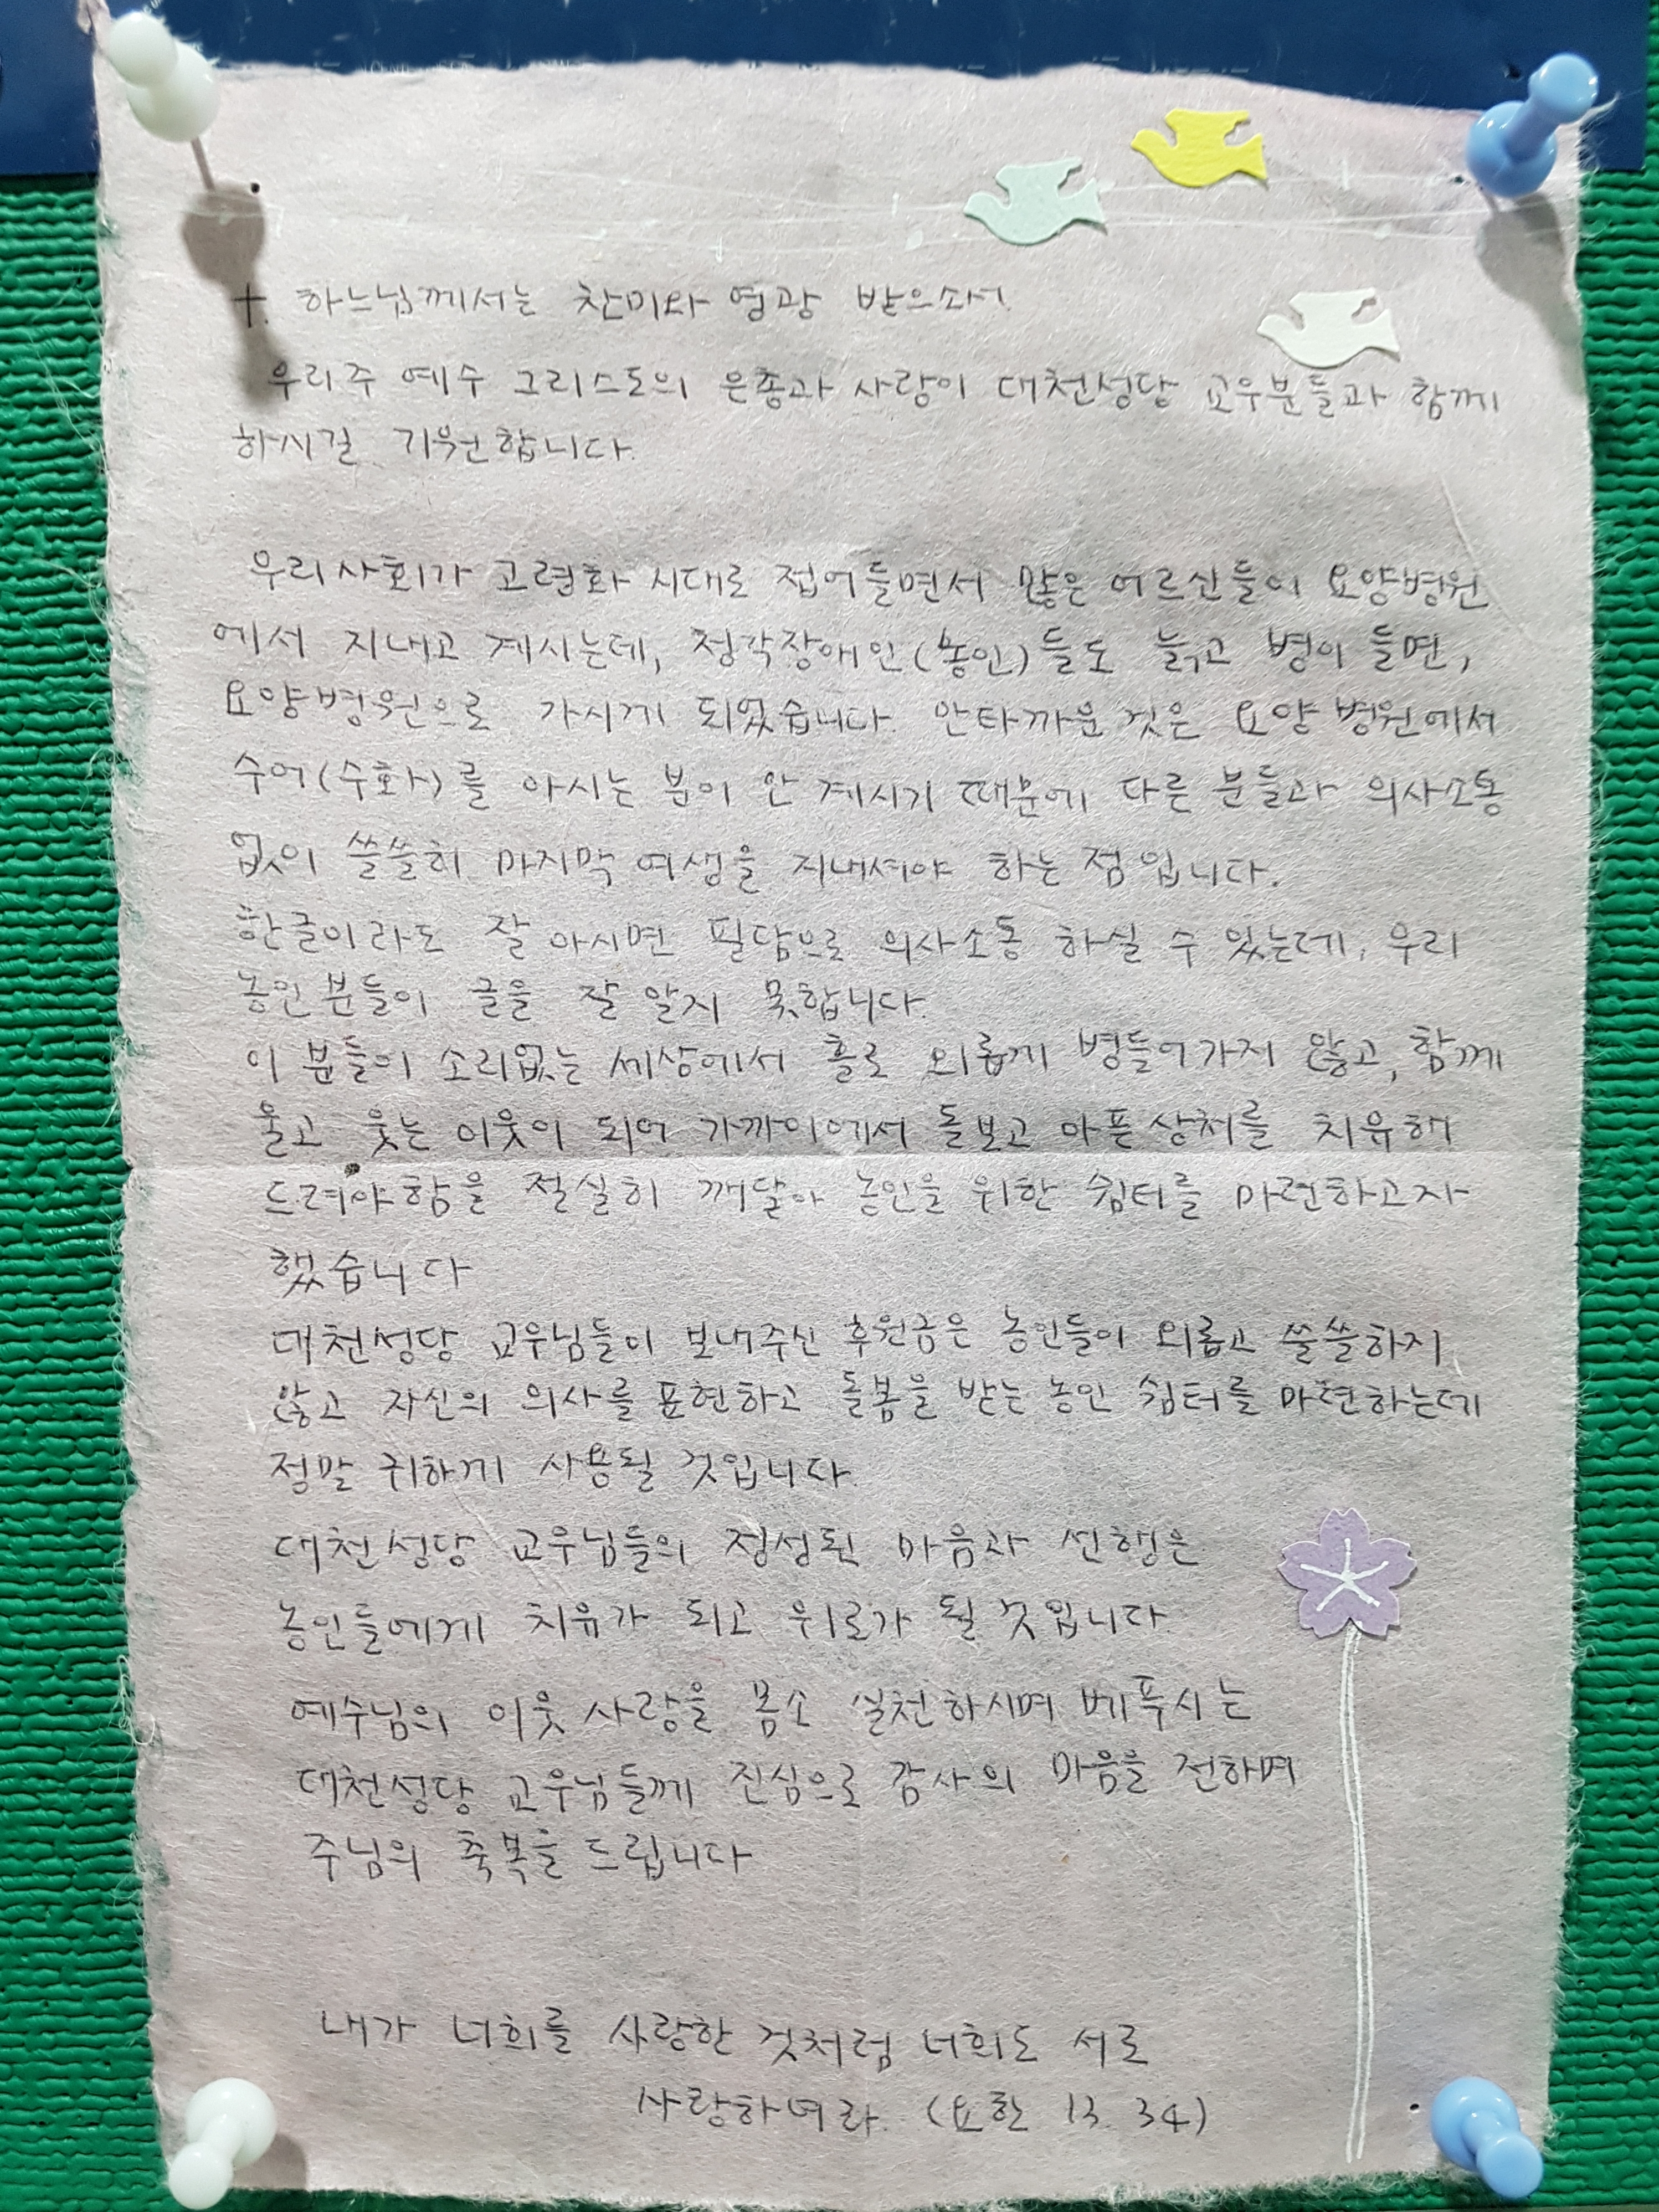 +. 하느님께서는 찬미와 영광 받으소서.
우리주 예수 그리스도의 은총과 사랑이 대천성당 교우분들과 함께
하시길 기원합니다.
우리사회가 고령화 시대로 접어들면서 많은 어르신들이 요양병원
에서 지내고 계시는데, 청각장애인(농인)들도 늙고 병이 들면,
요양병원으로 가시게 되었습니다. 안타까운 것은 요양병원에서
수어(수화)를 아시는 분이 안 계시기 때문에 다른 분들과 의사소통
없이 쓸쓸히 마지막 여생을 지내셔야 하는 점입니다.
한글이라도 잘 아시면 필담으로 의사소통 하실 수 있는데, 우리
농인분들이 글을 잘 알지 못합니다.
이 분들이 소리없는 세상에서 홀로 외롭게 병들어가지 않고, 함께
울고 웃는 이웃이 되어 가까이에서 돌보고 아픈상처를 치유해
드려야함을 절실히 깨달아 농인을 위한 쉼터를 마련하고자
했습니다
대천성당 교우님들이 보내주신 후원금은 농인들이 외롭고 쓸쓸하지
않고 자신의 의사를 표현하고 돌봄을 받는 농인 쉼터를 마련하는데
정말 귀하게 사용될 것입니다.
대천성당 교우님들의 정성된 마음과 선행은
농인들에게 치유가 되고 위로가 될 것입니다.
예수님의 이웃사랑을 몸소 실천하시며 베푸시는
대천성당 교우님들께 진심으로 감사의 마음을 전하며
주님의 축복을 드립니다
내가 너희를 사랑한 것처럼 너희도 서로
사랑하여라. (요한 13. 34)